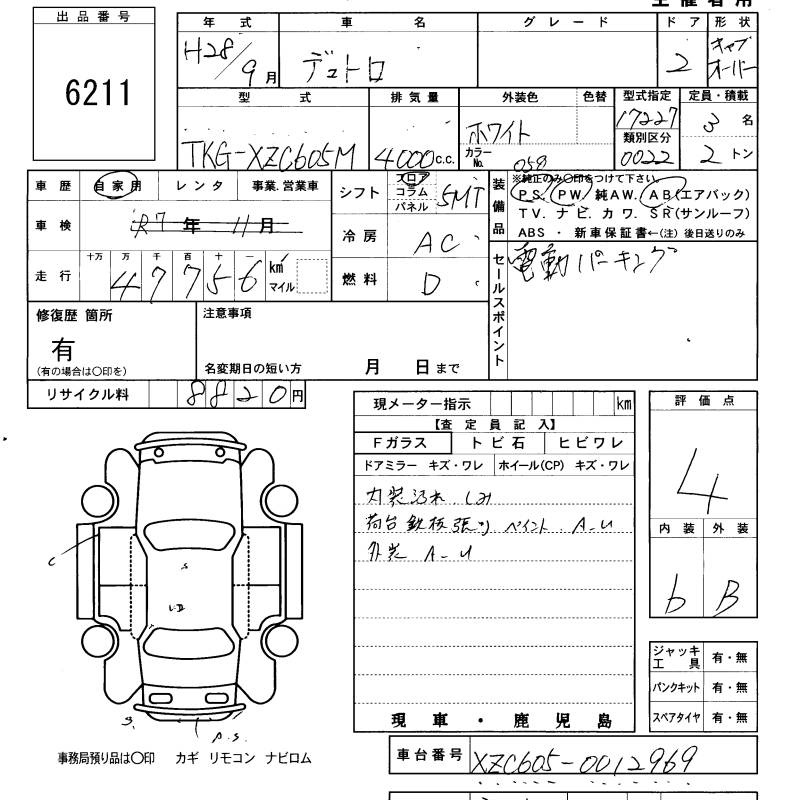 出品番号
6211
年式 車名 グレード ドア 形状
H28/9月 デュトロ 2 キャブオーバー
型式 排気量 外装色 色替 型式指定 定員・積載
TKG-XZC605M 4000c.c. ホワイト 17227 3名
カラーNo. 059 類別区分 0022 2トン
車歴 自家用 レンタ 事業.営業車
シフト フロア コラム パネル 5MT
装備品 ※純正のみ〇印をつけて下さい。
P.S. PW 純AW. AB(エアバック)
TV.ナビ.カワ.SR(サンルーフ)
ABS ・ 新車保証書←(注) 後日送りのみ
車検 R7年 11月
冷房 AC
走行 十万 万 千 百 十 一
47756 km マイル
燃料 D
セールスポイント 電動パーキング
修復歴 箇所
有
(有の場合は〇印を)
注意事項
名変期日の短い方 月 日まで
リサイクル料 8820円
現メーター指示 km
【査定員記入】
Fガラス トビ石 ヒビワレ
ドアミラー キズ・ワレ ホイール(CP) キズ・ワレ
内装汚れ.しみ
荷台 鉄板張り ペイント. A-U
外装 A-U
現車・鹿児島
評価点
4
内装 外装
b B
ジャッキ工具 有・無
パンクキット 有・無
スペアタイヤ 有・無
C
S
S.
P.S.
事務局預り品は〇印 カギ リモコン ナビロム
車台番号 XZC605-0012969